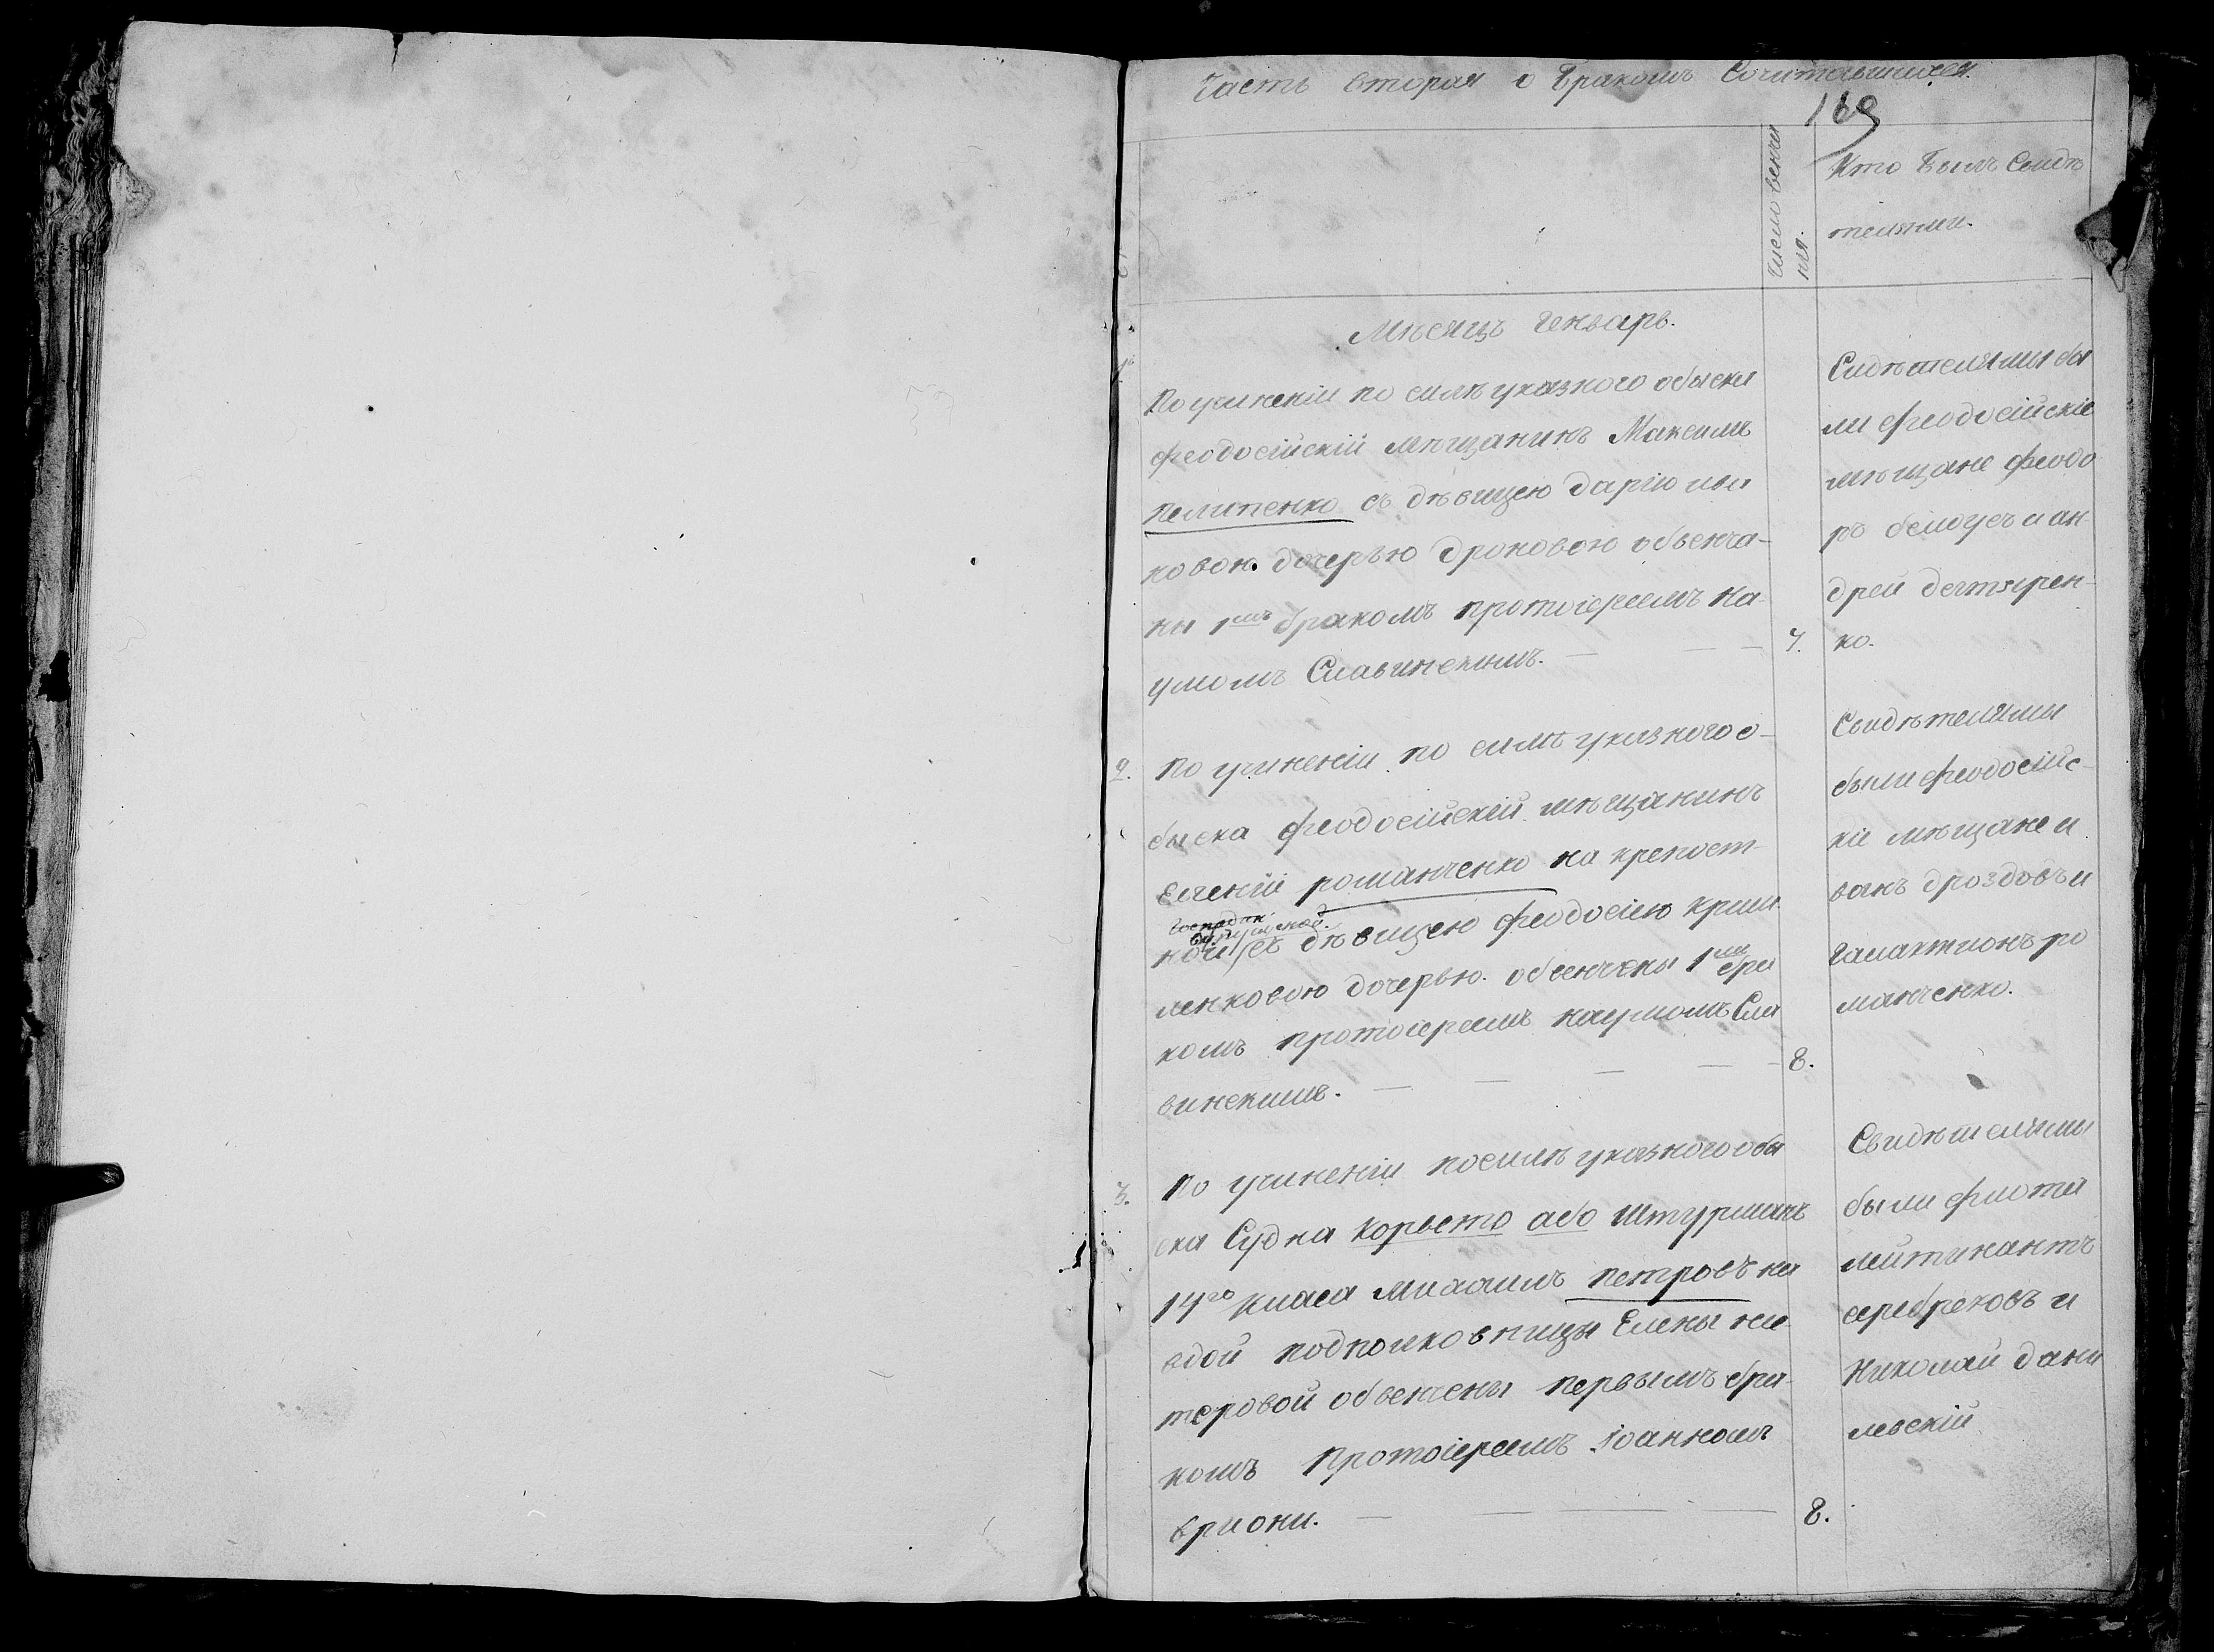 Часть вторая о Бракомъ Сочитавшихся.
169
Число венча
нія.
Кто былъ Свидѣ
телями.
Мѣсяцъ Генварь.
1.
По учиненіи по силѣ указного обыска
феодосійскій мѣщанинъ Максимъ
пелипенко съ дѣвицею даріею ива
новою дочерью дроновою обвенча-
ны 1мъ бракомъ протоіереемъ На-
умомъ Славинскимъ.
7.
Свидѣтелями бы
ли феодосійскіе
мѣщане феодо
ръ белоусъ и ан-
дрей дегтярен-
ко.
2.
По учиненіи по силѣ указного о-
быска феодосійскій мѣщанинъ
Евгеній романченко на крепост-
ной дѣвицею феодосіею
ленковою дочерью. обвенчены 1мъ бра
комъ протоіереемъ наумомъ Сла
винскимъ.
8.
Свидѣтелями
были феодосійс-
кіе мѣщане и
ванъ дроздовъ и
Галактионъ ро
манченко.
3.
По учиненіи по силѣ указного обы
ска Судна Корвето або штурманъ
14го класа михаилъ петровъ на
вдой подполковницы Елены
теровой обвенчены первымъ бра-
комъ Протоіереемъ Іоанномъ
вриони.
8.
Свидѣтелями
были флота
лейтинантъ
серебреновъ и
Николай дани
левскій